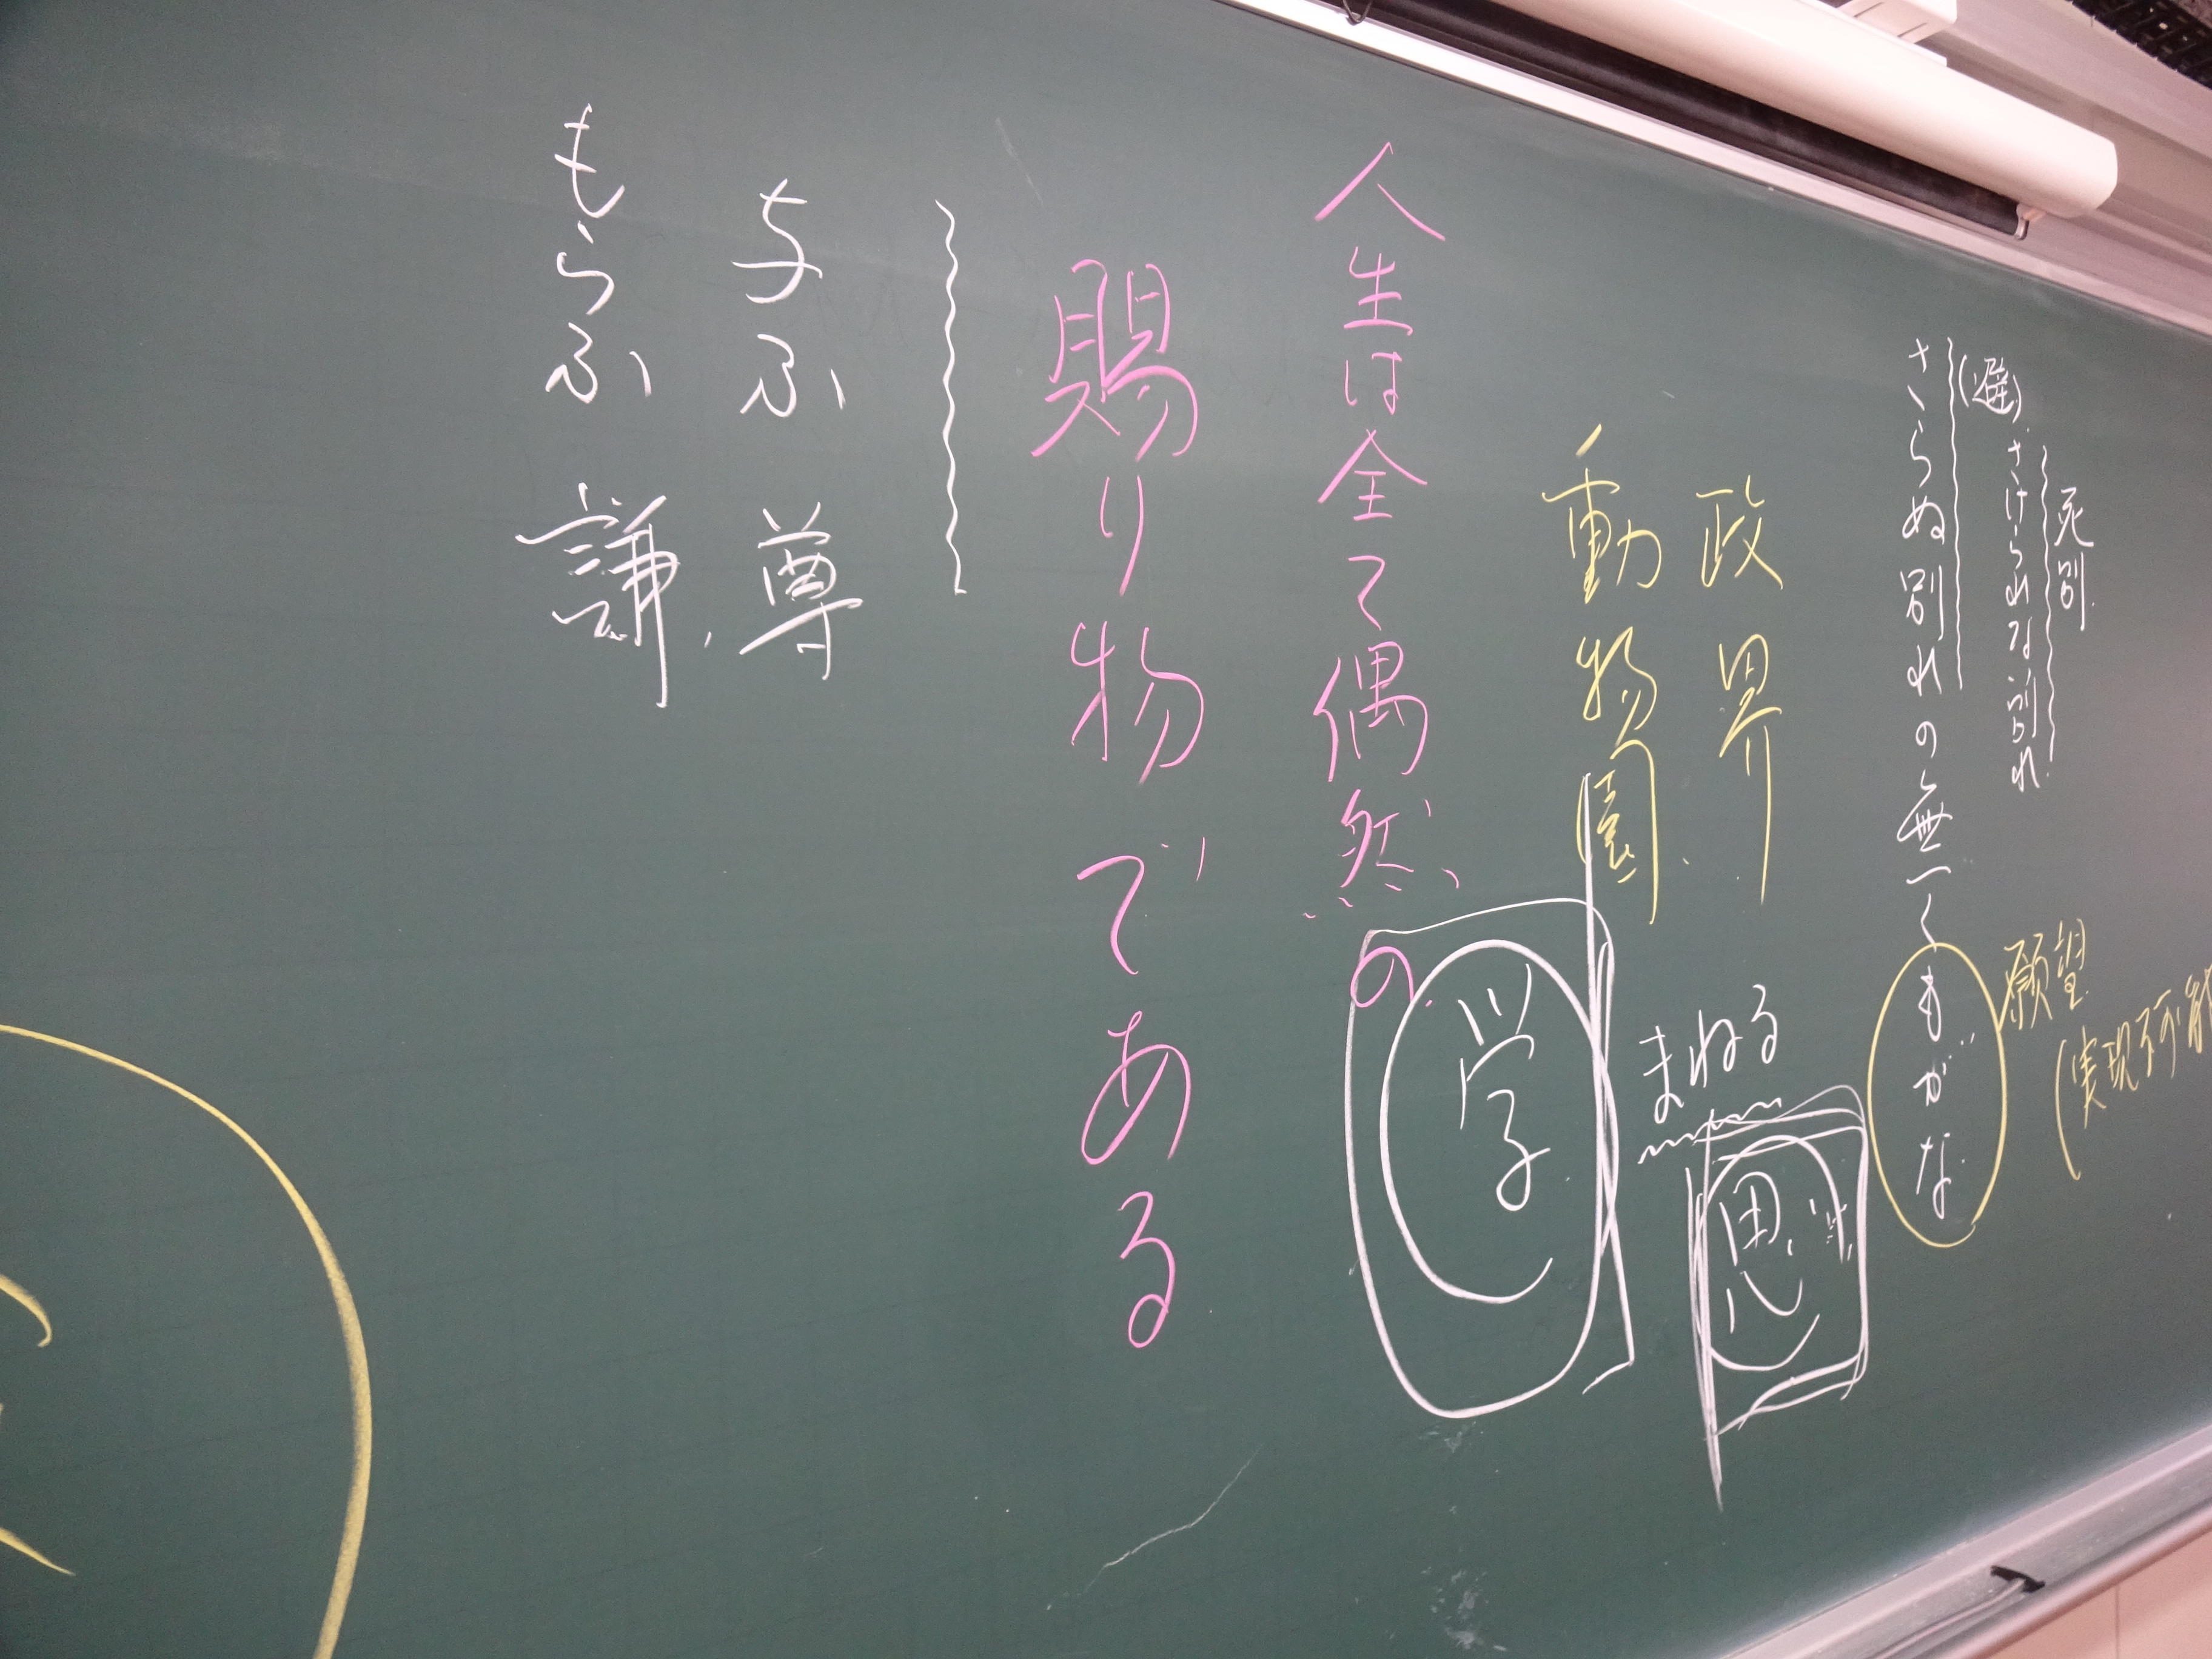 死別
さけられない別れ
(避)
さらぬ別れの無くもがな
願望
(実現不可能
政界
動物園
まねる
思
学
人生は全て偶然の
賜り物である
与ふ 尊
もらふ 謙